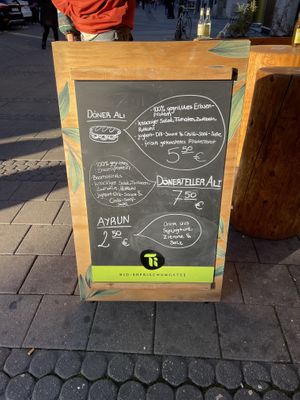 DÖNER ALI
100% gegrilltes Erbsen-
protein
knackiger Salat, Tomaten, Zwiebeln,
Rotkohl
Joghurt-Dill-Sauce & Chili-Soße
frisch gebackenes Fladenbrot
5,50 €
100% gegrilltes
Erbsenprotein
knackiger Salat, Tomaten,
Zwiebeln,
Rotkohl
Joghurt-Dill-Sauce &
DÖNERTELLER ALI
7,50 €
AYRUN
2,50 €
Drink aus
Sojajoghurt,
Zitrone &
Salz